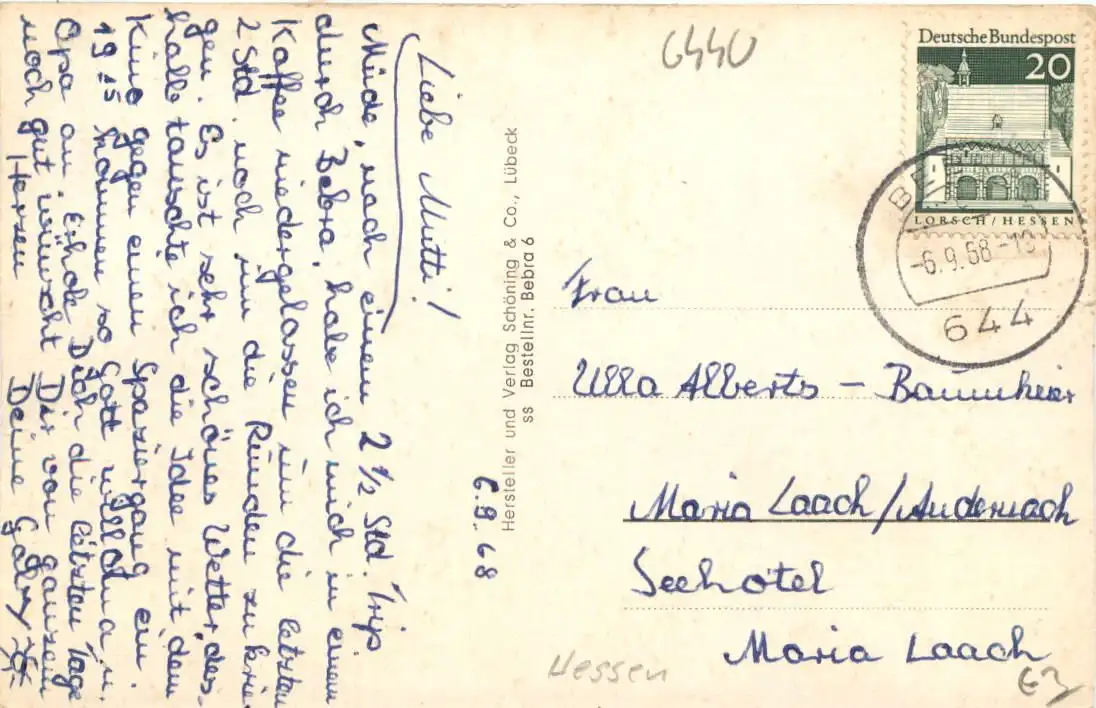 6440
Liebe Mutti!
Müde, nach einem 2 1/2 Std. Trip
durch Bebra, habe ich mich in einem
Kaffee niedergelassen um die letzten
2 Std. noch um die Runden zu krie-
gen. Es ist sehr schönes Wetter, des-
halb tauschte ich die Idee mit dem
Kino gegen einen Spaziergang ein.
19 15 kommen so Gott will Oma u.
Opa an. Erhole Dich die letzten Tage
noch gut wünscht Dir von ganzem
Herzen Deine Gaby
6.9.68
Hersteller und Verlag Schöning & Co., Lübeck
ss Bestellnr. Bebra 6
Deutsche Bundespost
20
LORSCH/HESSEN
BE
-6.9.68-
644
Frau
Ulla Alberts - Baumheier
Maria Laach/Andernach
Seehotel
Maria Laach
Hessen